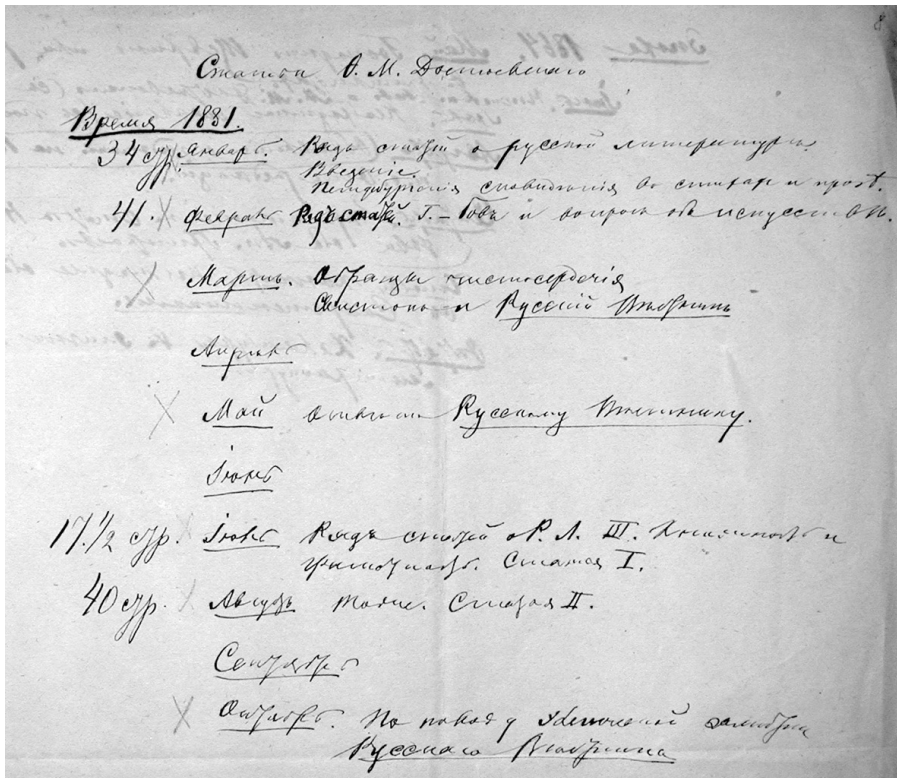 8
Статьи Ѳ. М. Достоевскаго
Время 1861.
34 стр. Январь. Рядъ статей о русской литературѣ.
Введеніе.
Петербургскія сновидѣнія въ стихахъ и прозѣ.
41. Февраль Рядъ статей. I. – Г-бовъ и вопросъ объ искусствѣ.
Мартъ. Образцы чистосердечія
Свистокъ и Русскій Вѣстникъ
Апрѣль
Май Отвѣтъ Русскому Вѣстнику.
Іюнь
17. 1/2 стр. Іюль Рядъ статей о Р. Л. III. Книжность и
грамотность. Статья I.
40 стр. Августъ тоже. Статья II.
Сентябрь
Октябрь. По поводу элегической замѣтки
Русскаго Вѣстника